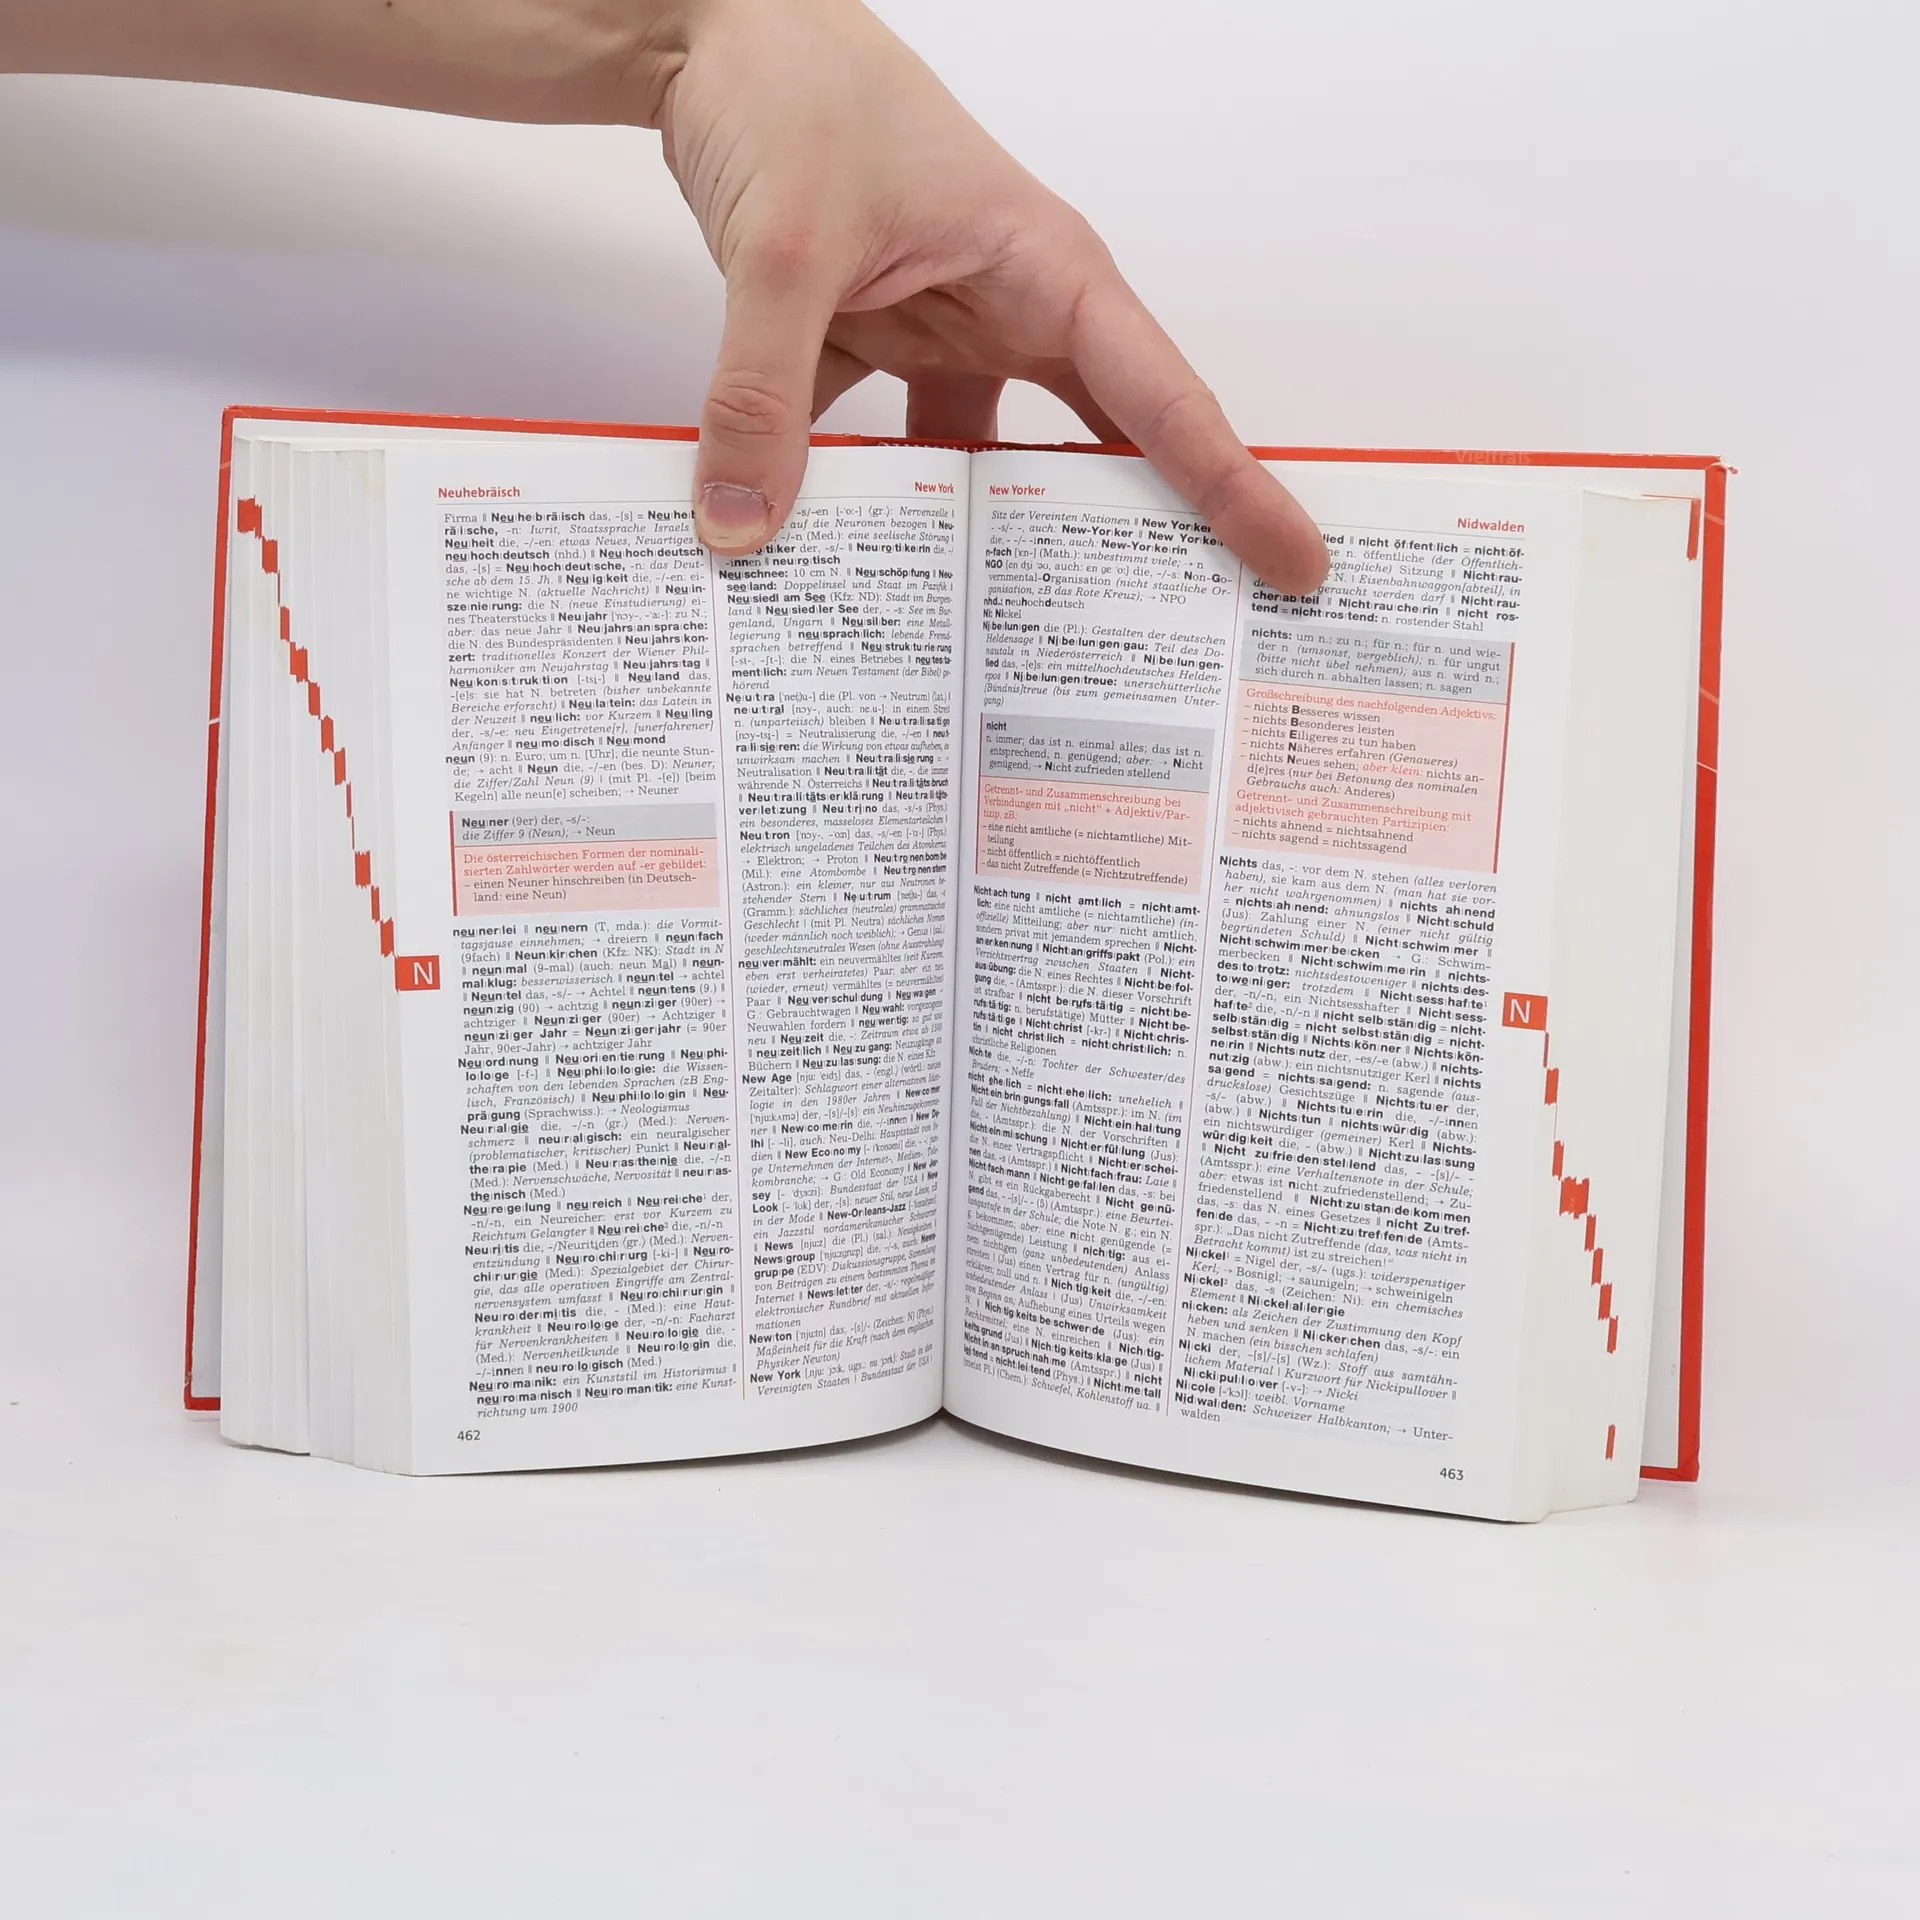 Neuhebräisch
New York
Firma || Neuhebräisch das, -[s] = Neuheb
räische, -n: Iwrit, Staatssprache Israels
Neuheit die, -/-en: etwas Neues, Neuartiges
neuhochdeutsch (nhd.) || Neuhochdeutsch
das, -[s] = Neuhochdeutsche, -n: das Deut-
sche ab dem 15. Jh. || Neuigkeit die, -/-en: ei-
ne wichtige N. (aktuelle Nachricht) || Neuin-
szenierung: die N. (neue Einstudierung) ei-
nes Theaterstücks || Neujahr [noy-, -'a:-]: zu N.;
aber: das neue Jahr || Neujahrsansprache:
die N. des Bundespräsidenten || Neujahrskon-
zert: traditionelles Konzert der Wiener Phil-
harmoniker am Neujahrstag || Neujahrstag ||
Neukonstruktion [-tsi-] || Neuland das,
-[e]s: sie hat N. betreten (bisher unbekannte
Bereiche erforscht) || Neulatein: das Latein in
der Neuzeit || neulich: vor Kurzem || Neuling
der, -s/-e: neu Eingetretene[r], [unerfahrener]
Anfänger || neumodisch || Neumond
neun (9): n. Euro; um n. [Uhr]; die neunte Stun-
de; → acht || Neun die, -/-en (bes. D): Neuner;
die Ziffer/Zahl Neun (9) | (mit Pl. -[e]) [beim
Kegeln] alle neun[e] scheiben; → Neuner
Neuner (9er) der, -s/-:
die Ziffer 9 (Neun); → Neun
Die österreichischen Formen der nominali-
sierten Zahlwörter werden auf -er gebildet:
– einen Neuner hinschreiben (in Deutsch-
land: eine Neun)
neunerlei || neunern (T, mda.): die Vormit-
tagsjause einnehmen; → dreiern || neunfach
(9fach) || Neunkirchen (Kfz: NK): Stadt in N
|| neunmal (9-mal) (auch: neun Mal) || neun-
malklug: besserwisserisch || neuntel → achtel
|| Neuntel das, -s/- → Achtel || neuntens (9.) ||
neunzig (90) → achtzig || neunziger (90er) →
achtziger || Neunziger (90er) → Achtziger ||
neunziger Jahr = Neunzigerjahr (= 90er
Jahr, 90er-Jahr) → achtziger Jahr
Neuordnung || Neuorientierung || Neuphi-
lologe [-f-] || Neuphilologie: die Wissen-
schaften von den lebenden Sprachen (zB Eng-
lisch, Französisch) || Neuphilologin || Neu-
prägung (Sprachwiss.): → Neologismus
Neuralgie die, -/-n (gr.) (Med.): Nerven-
schmerz || neuralgisch: ein neuralgischer
(problematischer, kritischer) Punkt || Neural-
therapie (Med.) || Neurasthenie die, -/-n
(Med.): Nervenschwäche, Nervosität || neuras-
thenisch (Med.)
Neuregelung || neureich || Neureiche¹ der,
-n/-n, ein Neureicher: erst vor Kurzem zu
Reichtum Gelangter || Neureiche² die, -n/-n
Neuritis die, -/Neuritiden (gr.) (Med.): Nerven-
entzündung || Neurochirurg [-ki-] || Neuro-
chirurgie (Med.): Spezialgebiet der Chirur-
gie, das alle operativen Eingriffe am Zentral-
nervensystem umfasst || Neurochirurgin ||
Neurodermitis die, - (Med.): eine Haut-
krankheit || Neurologe der, -n/-n: Facharzt
für Nervenkrankheiten || Neurologie die, -
(Med.): Nervenheilkunde || Neurologin die,
-/-innen || neurologisch (Med.)
Neuromanik: ein Kunststil im Historismus ||
neuromanisch || Neuromantik: eine Kunst-
richtung um 1900
462
N
-s/-en [-'o:-] (gr.): Nervenzelle |
auf die Neuronen bezogen || Neu-
-/-n (Med.): eine seelische Störung |
tiker der, -s/- || Neurotikerin die, -/
-innen || neurotisch
Neuschnee: 10 cm N. || Neuschöpfung || Neu-
seeland: Doppelinsel und Staat im Pazifik |
Neusiedl am See (Kfz: ND): Stadt im Burgen-
land || Neusiedler See der, - -s: See im Bur-
genland, Ungarn || Neusilber: eine Metall-
legierung || neusprachlich: lebende Fremd-
sprachen betreffend || Neustrukturierung
[-st-, -ʃt-]: die N. eines Betriebes || neutesta-
mentlich: zum Neuen Testament (der Bibel) ge-
hörend
Neutra ['ne(ɔ)u-] (die Pl. von → Neutrum) (lat.) |
neutral [noy-, auch: ne.u-]: in einem Streit
n. (unparteiisch) bleiben || Neutralisation
[noy-tsi-] = Neutralisierung die, -/-en || neut-
ralisieren: die Wirkung von etwas aufheben, es
unwirksam machen || Neutralisierung =
Neutralisation || Neutralität die, -: die immer
währende N. Österreichs || Neutralitätsbruch
|| Neutralitätserklärung || Neutralitäts-
verletzung || Neutrino das, -s/-s (Phys.):
ein besonderes, masseloses Elementarteilchen |
Neutron [noy-, -'on] das, -s/-en [-'o:-] (Phys.):
elektrisch ungeladenes Teilchen des Atomkerns;
→ Elektron; → Proton || Neutronenbombe
(Mil.): eine Atombombe || Neutronenstern
(Astron.): ein kleiner, nur aus Neutronen be-
stehender Stern || Neutrum ['ne(ɔ)u-] das, -s
(Gramm.): sächliches (neutrales) grammatisches
Geschlecht | (mit Pl. Neutra) sächliches Nomen
(weder männlich noch weiblich); → Genus | (sal.)
geschlechtsneutrales Wesen (ohne Ausstrahlung)
neuvermählt: ein neuvermähltes (seit Kurzem,
eben erst verheiratetes) Paar, aber: ein neu
(wieder, erneut) vermähltes (= neuvermähltes)
Paar || Neuverschuldung || Neuwagen →
G.: Gebrauchtwagen || Neuwahl: vorgezogene
Neuwahlen fordern || neuwertig: so gut wie
neu || Neuzeit die, -: Zeitraum etwa ab 1500
|| neuzeitlich || Neuzugang: Neuzugänge an
Büchern || Neuzulassung: die N. eines Kfz
New Age [nju: 'eɪdʒ] das, - (engl.) (wörtl.: neues
Zeitalter): Schlagwort einer alternativen Ideo-
logie in den 1980er Jahren || Newcomer
['nju:kʌmə] der, -[s]/-[s]: ein Neuhinzugekomme-
ner || Newcomerin die, -/-innen || New De-
lhi [- -li], auch: Neu-Delhi: Hauptstadt von In-
dien || New Economy [- -'kɔnəmi] die, - -: jun-
ge Unternehmen der Internet-, Medien-, Tele-
kombranche; → G.: Old Economy || New Jer-
sey [- 'dʒɜ:zi]: Bundesstaat der USA || New
Look [- 'lʊk] der, -[s]: neuer Stil, neue Linie, zB
in der Mode || New-Orleans-Jazz
ein Jazzstil nordamerikanischer Schwarzer
|| News [nju:z] die (Pl.) (sal.): Neuigkeiten |
Newsgroup ['nju:zgru:p] die, -/-s, auch: News-
gruppe (EDV): Diskussionsgruppe, Sammlung
von Beiträgen zu einem bestimmten Thema im
Internet || Newsletter der, -s/-: regelmäßiger
elektronischer Rundbrief mit aktuellen Infor-
mationen
Newton ['nju:tn] das, -[s]/- (Zeichen: N) (Phys.):
Maßeinheit für die Kraft (nach dem englischen
Physiker Newton)
New York [nju: 'jɔ:k, ugs.: nu jɔrk]: Stadt in den
Vereinigten Staaten | Bundesstaat der USA |
New Yorker
Nidwalden
Sitz der Vereinten Nationen || New Yorker
- -s/- -, auch: New-Yorker || New Yorke
die, - -/- -innen, auch: New-Yorkerin
n-fach ['ɛn-] (Math.): unbestimmt viele; → n
NGO [en dʒi 'əu, auch: en ge 'o:] die, -/-s: Non-Go-
vernmental-Organisation (nicht staatliche Or-
ganisation, zB das Rote Kreuz); → NPO
nhd.: neuhochdeutsch
Ni: Nickel
Nibelungen die (Pl.): Gestalten der deutschen
Heldensage || Nibelungengau: Teil des Do-
nautals in Niederösterreich || Nibelungen-
lied das, -[e]s: ein mittelhochdeutsches Helden-
epos || Nibelungentreue: unerschütterliche
[Bündnis]treue (bis zum gemeinsamen Unter-
gang)
nicht
n. immer; das ist n. einmal alles; das ist n.
entsprechend, n. genügend; aber: → Nicht
genügend; → Nicht zufrieden stellend
Getrennt- und Zusammenschreibung bei
Verbindungen mit „nicht“ + Adjektiv/Par-
tizip; zB:
– eine nicht amtliche (= nichtamtliche) Mit-
teilung
– nicht öffentlich = nichtöffentlich
– das nicht Zutreffende (= Nichtzutreffende)
Nichtachtung || nicht amtlich = nichtamt-
lich: eine nicht amtliche (= nichtamtliche) (in-
offizielle) Mitteilung; aber nur: nicht amtlich,
sondern privat mit jemandem sprechen || Nicht-
anerkennung || Nichtangriffspakt (Pol.): ein
Verzichtsvertrag zwischen Staaten || Nicht-
ausübung: die N. eines Rechtes || Nichtbefol-
gung die, - (Amtsspr.): die N. dieser Vorschrift
ist strafbar || nicht berufstätig = nichtbe-
rufstätig: n. berufstätige) Mütter || Nichtbe-
rufstätige || Nichtchrist [-kr-] || Nichtchris-
tin || nicht christlich = nichtchristlich: n.
christliche Religionen
Nichte die, -/-n: Tochter der Schwester/des
Bruders; → Neffe
nicht ehelich = nichtehelich: unehelich ||
Nichteinbringungsfall (Amtsspr.): im N. (im
Fall der Nichtbezahlung) || Nichteinhaltung
die, - (Amtsspr.): die N. der Vorschriften ||
Nichteinmischung || Nichterfüllung (Jus):
die N. einer Vertragspflicht || Nichterschei-
nen das, -s (Amtsspr.) || Nichtfachfrau: Laie ||
Nichtfachmann || Nichtgefallen das, -s: bei
N. gibt es ein Rückgaberecht || Nicht genü-
gend das, - -[s]/- - (5) (Amtsspr.): eine Beurtei-
lungsstufe in der Schule; die Note N. g.; ein N.
g. bekommen; aber: eine nicht genügende (=
nichtgenügende) Leistung || nichtig: aus ei-
nem nichtigen (ganz unbedeutenden) Anlass
streiten | (Jus) einen Vertrag für n. (ungültig)
erklären; null und n. || Nichtigkeit die, -/-en:
unbedeutender Anlass | (Jus) Unwirksamkeit
von Beginn an; Aufhebung eines Urteils wegen
N. || Nichtigkeitsbeschwerde (Jus): ein
Rechtsmittel; eine N. einreichen || Nichtig-
keitsgrund (Jus) || Nichtigkeitsklage (Jus) ||
Nichtinanspruchnahme (Amtsspr.) || nicht
leitend = nichtleitend (Phys.) || Nichtmetall
(meist Pl.) (Chem.): Schwefel, Kohlenstoff ua. ||
lied || nicht öffentlich = nichtöf-
ne n. öffentliche (der Öffentlich-
ugängliche) Sitzung || Nichtrau-
N. | Eisenbahnwaggon[abteil], in
geraucht werden darf || Nichtrau-
cherabteil || Nichtraucherin || nicht ros-
tend = nichtrostend: n. rostender Stahl
nichts: um n.; zu n.; für n.; für n. und wie-
der n. (umsonst, vergeblich); n. für ungut
(bitte nicht übel nehmen); aus n. wird n.;
sich durch n. abhalten lassen; n. sagen
Großschreibung des nachfolgenden Adjektivs:
– nichts Besseres wissen
– nichts Besonderes leisten
– nichts Eiligeres zu tun haben
– nichts Näheres erfahren (Genaueres)
– nichts Neues sehen; aber klein: nichts an-
d[e]res (nur bei Betonung des nominalen
Gebrauchs auch: Anderes)
Getrennt- und Zusammenschreibung mit
adjektivisch gebrauchten Partizipien:
– nichts ahnend = nichtsahnend
– nichts sagend = nichtssagend
Nichts das, -: vor dem N. stehen (alles verloren
haben), sie kam aus dem N. (man hat sie vor-
her nicht wahrgenommen) || nichts ahnend
= nichtsahnend: ahnungslos || Nichtschuld
(Jus): Zahlung einer N. (einer nicht gültig
begründeten Schuld) || Nichtschwimmer ||
Nichtschwimmerbecken → G.: Schwim-
merbecken || Nichtschwimmerin || nichts-
destotrotz: nichtsdestoweniger || nichtsdes-
toweniger: trotzdem || Nichtsesshafte¹
der, -n/-n, ein Nichtsesshafter || Nichtsess-
hafte² die, -n/-n || nicht selbständig = nicht-
selbständig = nicht selbstständig = nicht-
selbstständig || Nichtskönner || Nichtskön-
nerin || Nichtsnutz der, -es/-e (abw.) || nichts-
nutzig (abw.): ein nichtsnutziger Kerl || nichts
sagend = nichtssagend: n. sagende (aus-
druckslose) Gesichtszüge || Nichtstuer der,
-s/- (abw.) || Nichtstuerin die, -/-innen
(abw.) || Nichtstun || nichtswürdig (abw.):
ein nichtswürdiger (gemeiner) Kerl || Nichts-
würdigkeit die, - (abw.) || Nichtzulassung
|| Nicht zufriedenstellend das, - -[s]/- -
(Amtsspr.): eine Verhaltensnote in der Schule;
aber: etwas ist nicht zufriedenstellend; → Zu-
friedenstellend || Nichtzustandekommen
das, -s: das N. eines Gesetzes || nicht Zutref-
fende das, - -n = Nichtzutreffende (Amts-
spr.): „Das nicht Zutreffende (das, was nicht in
Betracht kommt) ist zu streichen!“
Nickel¹ = Nigel der, -s/- (ugs.): widerspenstiger
Kerl; → Bosnigl; → saunigeln; → schweinigeln
Nickel² das, -s (Zeichen: Ni): ein chemisches
Element || Nickelallergie
nicken: als Zeichen der Zustimmung den Kopf
heben und senken || Nickerchen das, -s/-: ein
N. machen (ein bisschen schlafen)
Nicki der, -[s]/-[s] (Wz.): Stoff aus samtähn-
lichem Material | Kurzwort für Nickipullover ||
Nickipullover [-v-]: → Nicki
Nicole [-'kɔl]: weibl. Vorname
Nidwalden: Schweizer Halbkanton; → Unter-
walden
463
N